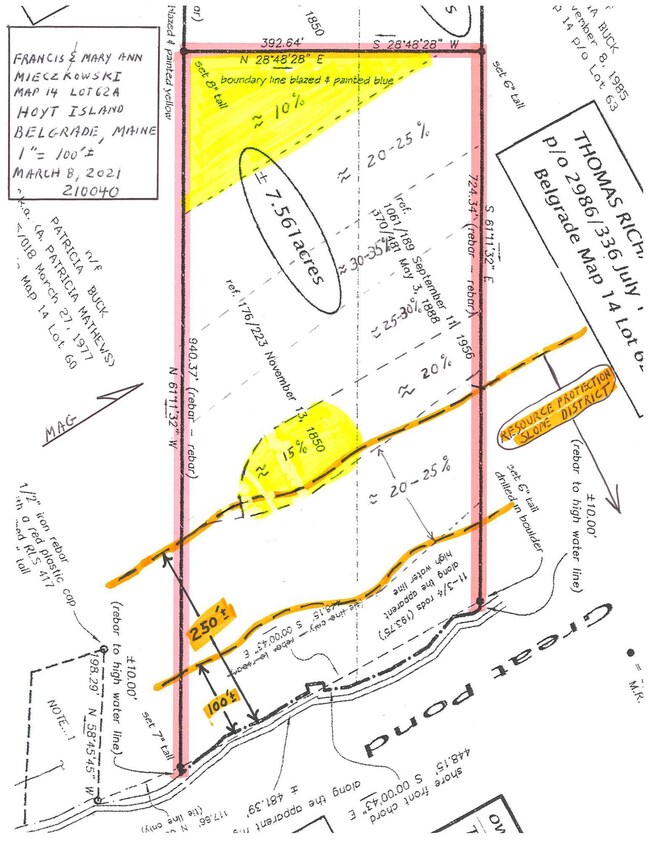 FRANCIS & MARY ANN
MIECZKOWSKI
MAP 14 LOT 62A
HOYT ISLAND
BELGRADE, MAINE
1" = 100'±
MARCH 8, 2021
210040
blazed & painted yellow
bar)
1850
S
392.64'
S 28°48'28" W
N 28°48'28" E
boundary line blazed & painted blue
set 8" tall
set 6" tall
A BUCK
vember 8, 1985
p 14 p/o Lot 63
≈ 10%
≈ 20-25%
± 7.561 acres
≈ 30-35%
≈ 25-30%
≈ 20%
≈ 15%
≈ 20-25%
ref.
1061/189 September 11, 1956
370/481 May 3, 1888
ref. 176/223 November 13, 1850
724.34' (rebar - rebar)
S 61°11'32" E
940.37' (rebar - rebar)
N 61°11'32" W
THOMAS RICH
p/o 2986/336 July
Belgrade Map 14 Lot 62
n/f
PATRICIA BUCK
.k.a. (A. PATRICIA MATHEWS)
/018 March 27, 1977
Map 14 Lot 60
MAG
RESOURCE PROTECTION
SLOPE DISTRICT
±10.00'
(rebar to high water line)
set 6" tall
drilled in boulder
1/2" iron rebar
a red plastic cap
RLS 417
tall
250'±
100'±
11-3/4 rods (193.75')
along the apparent
high water line
448.15'
S 00°00'43" E
tie line only
±10.00'
(rebar to high water line)
set 7" tall
198.29'
N 58°45'45" W
NOTE...1
Great Pond
M.R.
117.66'
(tie line only)
± 481.39'
along the apparent
448.15'
S 00°00'43" E
shore front chord